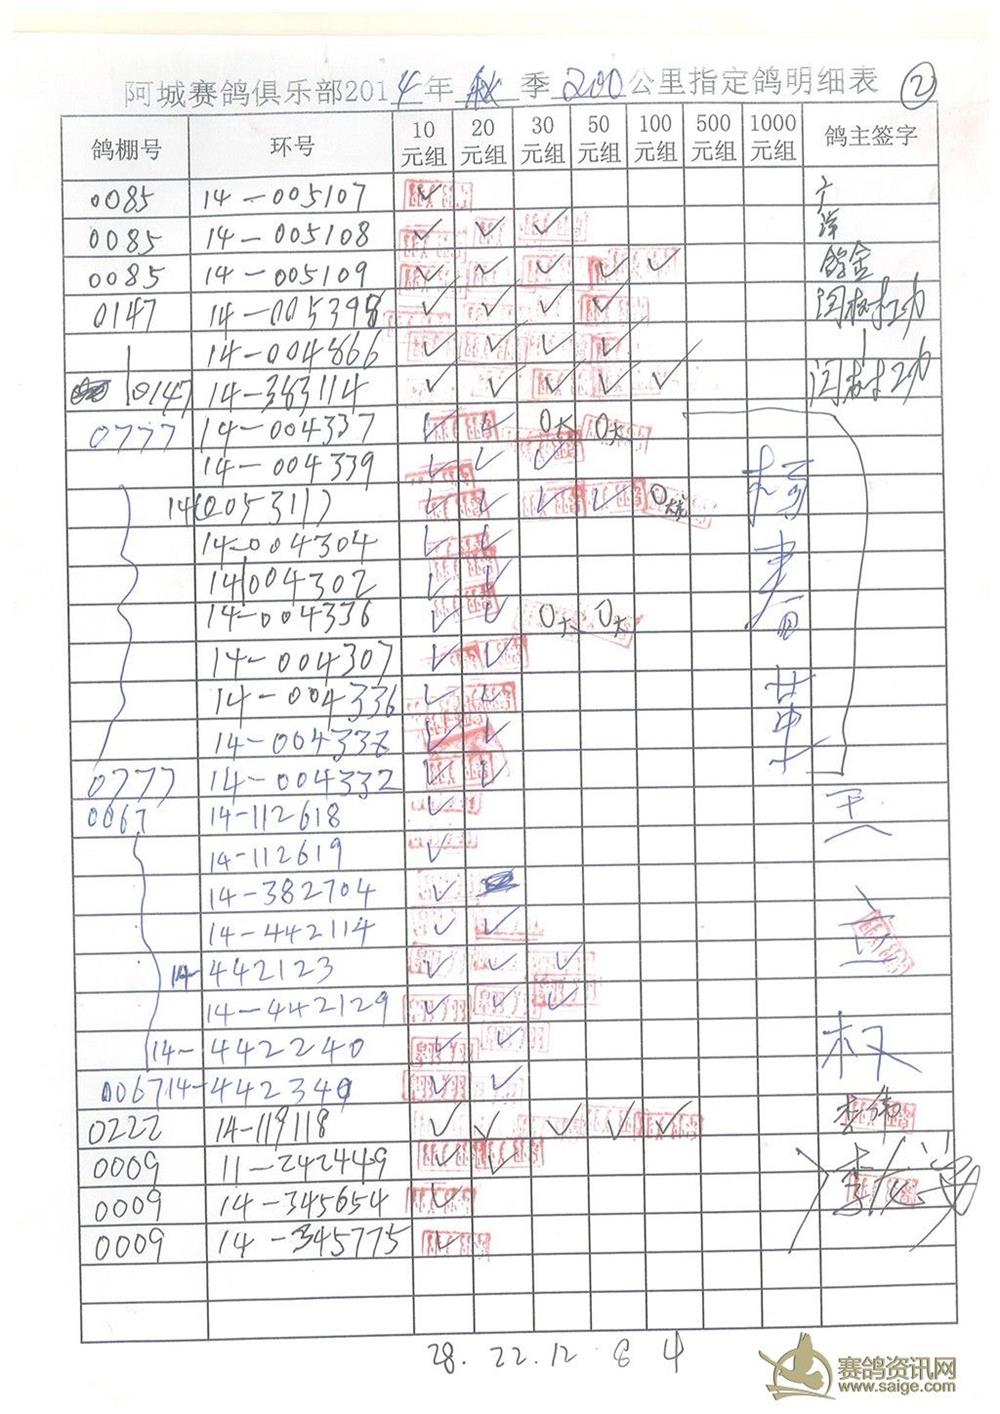 阿城赛鸽俱乐部2014年 秋 季 200 公里指定鸽明细表 ②
鸽棚号 环号 10元组 20元组 30元组 50元组 100元组 500元组 1000元组 鸽主签字
0085 14-005107 ✓
0085 14-005108 ✓ ✓ ✓
0085 14-005109 ✓ ✓ ✓ ✓ ✓
0147 14-005398 ✓ ✓ ✓ ✓
14-004866 ✓ ✓ ✓ ✓
0147 14-383114 ✓ ✓ ✓ ✓ ✓
0777 14-004337 ✓ ✓
14-004339 ✓ ✓ ✓
14-0053117 ✓ ✓ ✓ ✓
14-004304 ✓ ✓
14-004302 ✓ ✓
14-004336 ✓ ✓
14-004307 ✓ ✓
14-004336 ✓ ✓
14-004338 ✓ ✓
0777 14-004332 ✓ ✓
0067 14-112618 ✓ 王
14-112619 ✓
14-382704 ✓
14-442114 ✓ ✓ 立
14-442123 ✓ ✓ ✓
14-442129 ✓ ✓ ✓
14-442240 ✓ ✓ 权
0067 14-442340 ✓ ✓
0222 14-119118 ✓ ✓ ✓ ✓ ✓ 李伟
0009 11-242449 ✓ ✓
0009 14-345654 ✓
0009 14-345775 ✓
28. 22. 12 8 4
赛鸽资讯网
www.saige.com